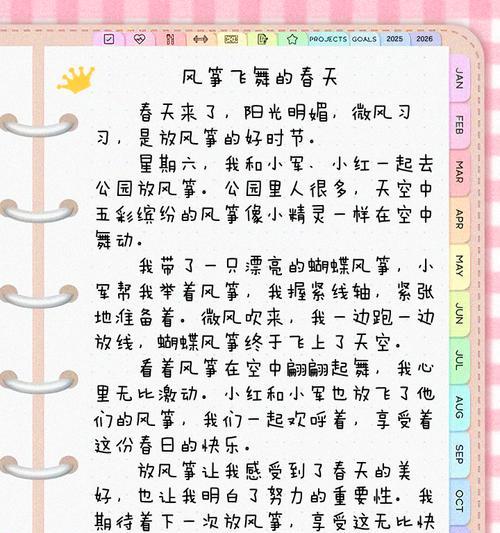 PROJECTS GOALS 2025 2026
风筝飞舞的春天
春天来了，阳光明媚，微风习
习，是放风筝的好时节。
星期六，我和小军、小红一起去
公园放风筝。公园里人很多，天空中
五彩缤纷的风筝像小精灵一样在空中
舞动。
我带了一只漂亮的蝴蝶风筝，小
军帮我举着风筝，我握紧线轴，紧张
地准备着。微风吹来，我一边跑一边
放线，蝴蝶风筝终于飞上了天空。
看着风筝在空中翩翩起舞，我心
里无比激动。小红和小军也放飞了他
们的风筝，我们一起欢呼着，享受着
这份春日的快乐。
放风筝让我感受到了春天的美
好，也让我明白了努力的重要性。我
期待着下一次放风筝，享受这无比快
JAN
FEB
MAR
APR
MAY
JUN
JUL
AUG
SEP
OCT